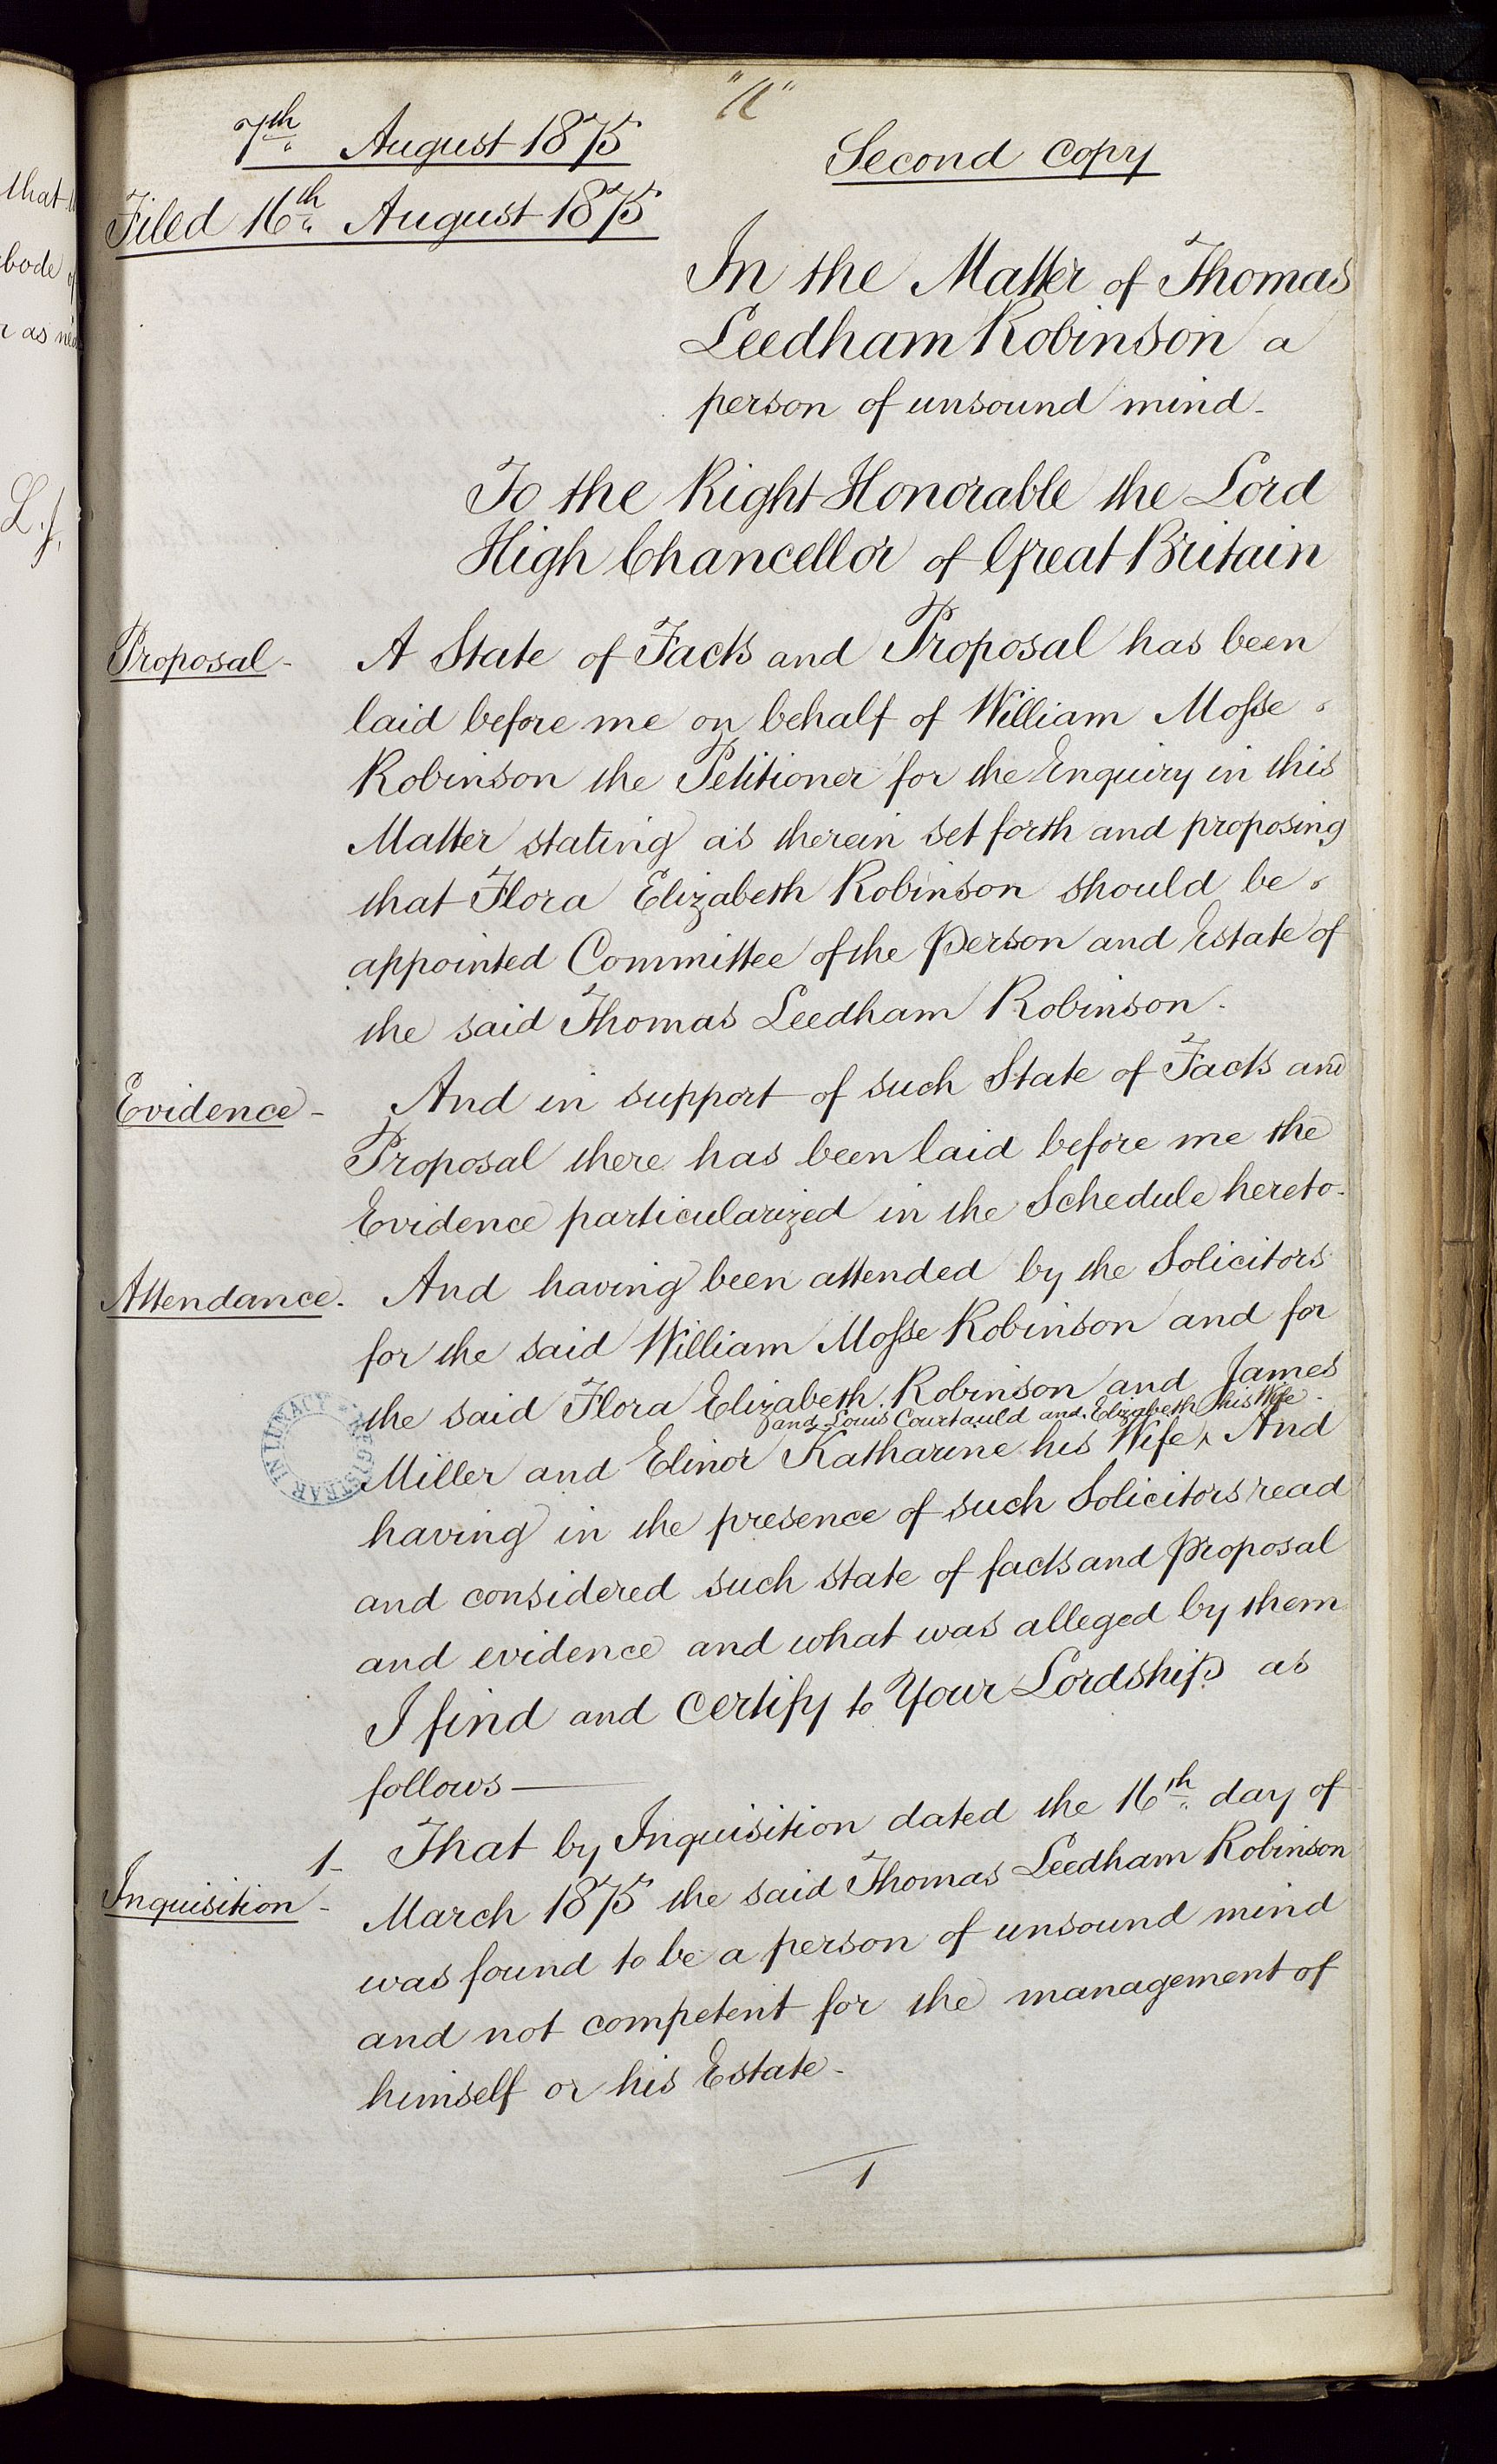 "A"
7th August 1875
Second Copy
Filed 16th August 1875
In the Matter of Thomas
Leedham Robinson a
person of unsound mind-
To the Right Honorable the Lord
High Chancellor of Great Britain
Proposal-
A State of Facts and Proposal has been
laid before me on behalf of William Mosse
Robinson the Petitioner for the Enquiry in this
Matter stating as therein set forth and proposing
that Flora Elizabeth Robinson should be
appointed Committee of the Person and Estate of
the said Thomas Leedham Robinson-
Evidence-
And in support of such State of Facts and
Proposal there has been laid before me the
Evidence particularized in the Schedule hereto-
Attendance.
And having been attended by the Solicitors
for the said William Mosse Robinson and for
the said Flora Elizabeth Robinson and James
and Louis Courtauld and Elizabeth his Wife-
Miller and Elinor Katharine his Wife ^ And
having in the presence of such Solicitors read
and considered such state of facts and proposal
and evidence and what was alleged by them
I find and certify to Your Lordship as
follows—
1- That by Inquisition dated the 16th day of
Inquisition-
March 1875 the said Thomas Leedham Robinson
was found to be a person of unsound mind
and not competent for the management of
himself or his Estate-
1
REGISTRAR IN LUNACY
that
bode of
r as
L.J.